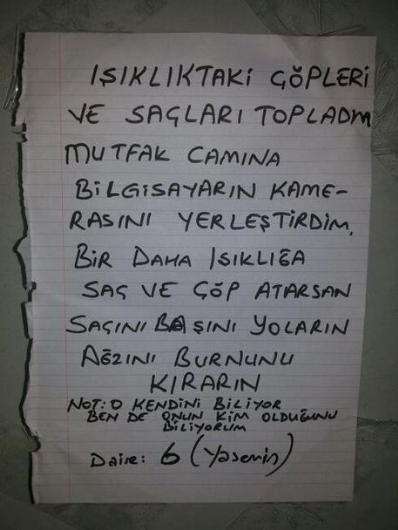 IŞIKLIKTAKİ ÇÖPLERİ
VE SAÇLARI TOPLADIM
MUTFAK CAMINA
BİLGİSAYARIN KAME-
RASINI YERLEŞTİRDİM.
BİR DAHA IŞIKLIĞA
SAÇ VE ÇÖP ATARSAN
SAÇINI BAŞINI YOLARIN
AĞZINI BURNUNU
KIRARIN
NOT: O KENDİNİ BİLİYOR
BEN DE ONUN KİM OLDUĞUNU
BİLİYORUM
Daire: 6 (Yasemin)